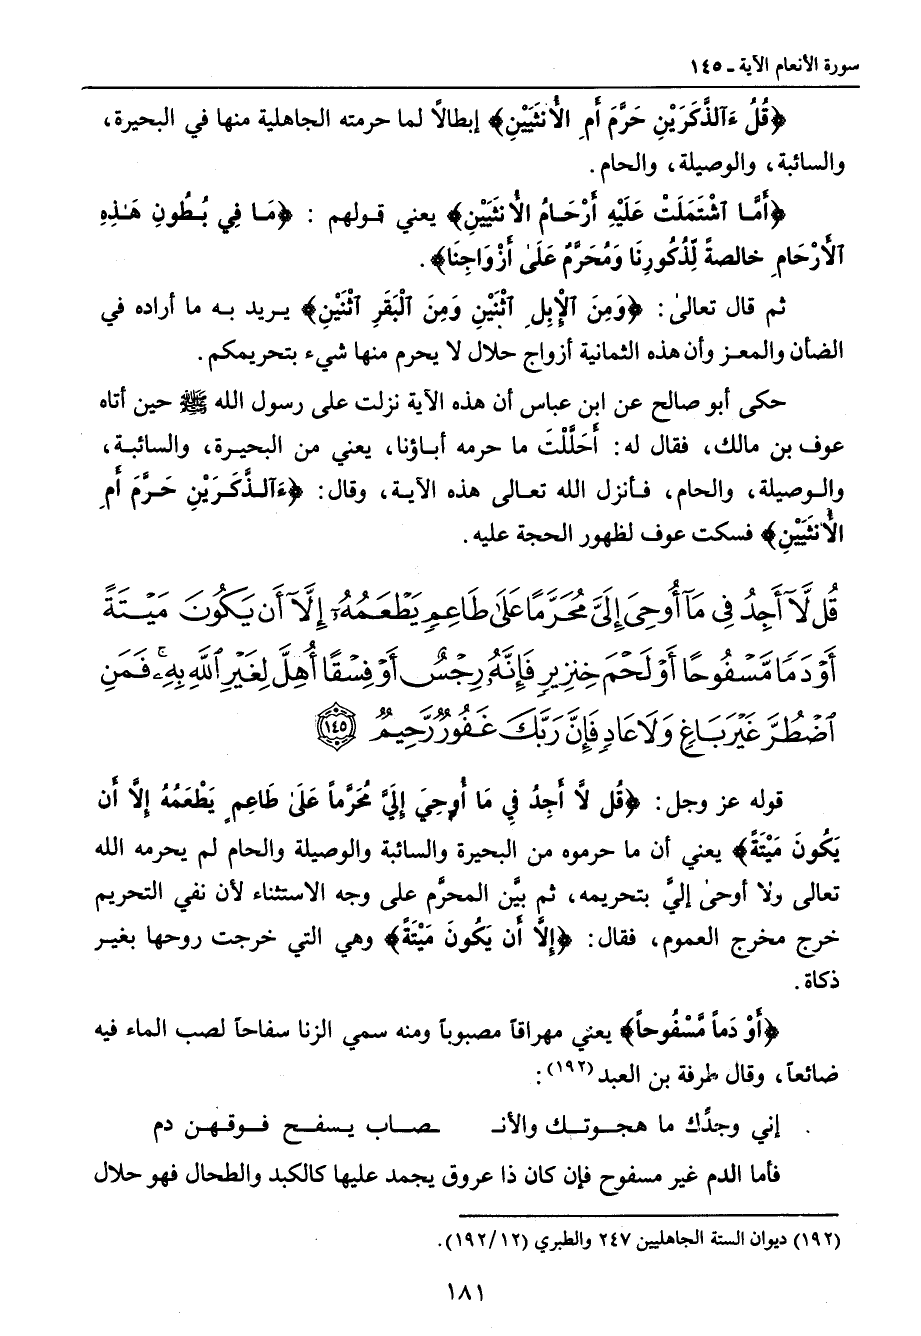 سورة الأنعام الآية ـ ١٤٥
﴿قُلْ ءَآلذَّكَرَيْنِ حَرَّمَ أَمِ الأُنثَيَيْنِ﴾ إبطالًا لما حرمته الجاهلية منها في البحيرة،
والسائبة، والوصيلة، والحام.
﴿أَمَّا ٱشْتَمَلَتْ عَلَيْهِ أَرْحَامُ الأُنثَيَيْنِ﴾ يعني قولهم : ﴿مَا فِي بُطُونِ هَٰذِهِ
ٱلأَرْحَامِ خالصةً لِّذُكُورِنَا وَمُحَرَّمٌ عَلَىٰ أَزْوَاجِنَا﴾.
ثم قال تعالىٰ: ﴿وَمِنَ ٱلإِبِلِ ٱثْنَيْنِ وَمِنَ الْبَقَرِ ٱثْنَيْنِ﴾ يريد به ما أراده في
الضأن والمعز وأن هذه الثمانية أزواج حلال لا يحرم منها شيء بتحريمكم.
حكى أبو صالح عن ابن عباس أن هذه الآية نزلت على رسول الله ﷺ حين أتاه
عوف بن مالك، فقال له: أَحَلَّلْتَ ما حرمه أباؤنا، يعني من البحيرة، والسائبة،
والوصيلة، والحام، فأنزل الله تعالى هذه الآية، وقال: ﴿ءَآلذَّكَرَيْنِ حَرَّمَ أَمِ
الأُنثَيَيْنِ﴾ فسكت عوف لظهور الحجة عليه.
قُل لَّآ أَجِدُ فِى مَآ أُوحِىَ إِلَىَّ مُحَرَّمًا عَلَىٰ طَاعِمٍ يَطْعَمُهُۥٓ إِلَّآ أَن يَكُونَ مَيْتَةً
أَوْ دَمًا مَّسْفُوحًا أَوْ لَحْمَ خِنزِيرٍ فَإِنَّهُۥ رِجْسٌ أَوْ فِسْقًا أُهِلَّ لِغَيْرِ ٱللَّهِ بِهِۦۚ فَمَنِ
ٱضْطُرَّ غَيْرَ بَاغٍ وَلَا عَادٍ فَإِنَّ رَبَّكَ غَفُورٌ رَّحِيمٌ ١٤٥
قوله عز وجل: ﴿قُل لاَّ أَجِدُ فِي مَا أُوحِيَ إِلَيَّ مُحَرَّماً عَلَىٰ طَاعِمٍ يَطْعَمُهُ إِلاَّ أَن
يَكُونَ مَيْتَةً﴾ يعني أن ما حرموه من البحيرة والسائبة والوصيلة والحام لم يحرمه الله
تعالى ولا أوحىٰ إليَّ بتحريمه، ثم بيَّن المحرَّم على وجه الاستثناء لأن نفي التحريم
خرج مخرج العموم، فقال: ﴿إِلاَّ أَن يَكُونَ مَيْتَةً﴾ وهي التي خرجت روحها بغير
ذكاة.
﴿أَوْ دَماً مَّسْفُوحاً﴾ يعني مهراقاً مصبوباً ومنه سمي الزنا سفاحاً لصب الماء فيه
ضائعاً، وقال طرفة بن العبد(١٩٢):
إني وجدِّك ما هجوتك والأنـ ـصاب يسفح فوقهن دم
فأما الدم غير مسفوح فإن كان ذا عروق يجمد عليها كالكبد والطحال فهو حلال
(١٩٢) ديوان الستة الجاهليين ٢٤٧ والطبري (١٩٢/١٢).
١٨١